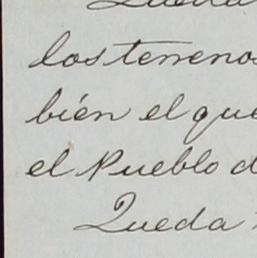 Queda
los terrenos
bién el que
el Pueblo d
Queda